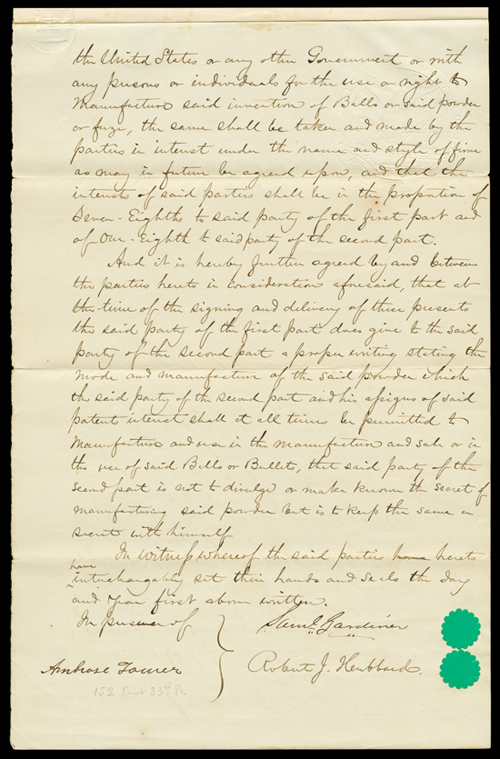 the United States or any other Government or with
any persons or individuals for the use or right to
Manufacture said invention of Balls or said powder
or fuze, the same shall be taken and made by the
parties in interest under the name and style of firm
as may in future be agreed upon, and that the
interest of said parties shall be in the proportion of
Seven-Eighths to said party of the first part and
of One-Eighth to said party of the second part.
And it is hereby further agreed by and between
the parties hereto in consideration aforesaid, that at
the time of the signing and delivery of these presents
the said party of the first part does give to the said
party of the second part a proper writing stating the
mode and manufacture of the said powder which
the said party of the second part and his assigns of said
patent interest shall at all times be permitted to
Manufacture and use in the manufacture and sale or in
the use of said Balls or Bullets, that said party of the
second part is not to divulge or make known the secret of
manufacturing said powder but is to keep the same a
secret with himself
In Witness whereof the said parties hereto
have
interchangeably set their hands and seals the day
and year first above written.
In presence of
Saml. Gardiner
Ambrose
Robert J. Hubbard.
152 East 33rd St.